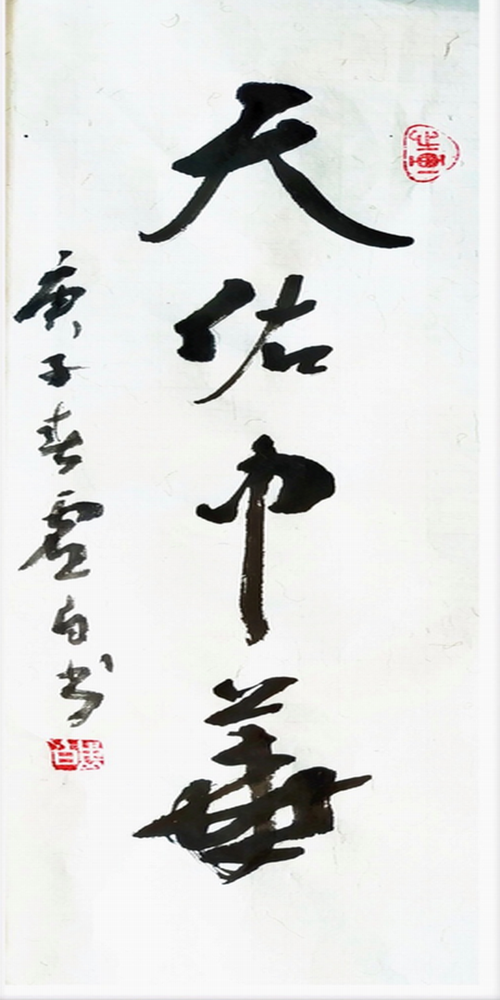 天佑中華
庚子春虚白书